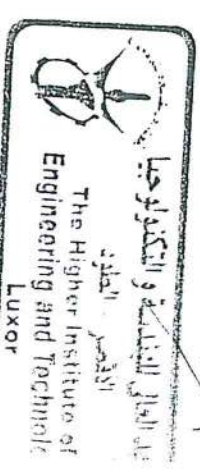 العالى للهندسة و التكنولوجيا
الأقصر - الطود
The Higher Institute of
Engineering and Technolo
Luxor